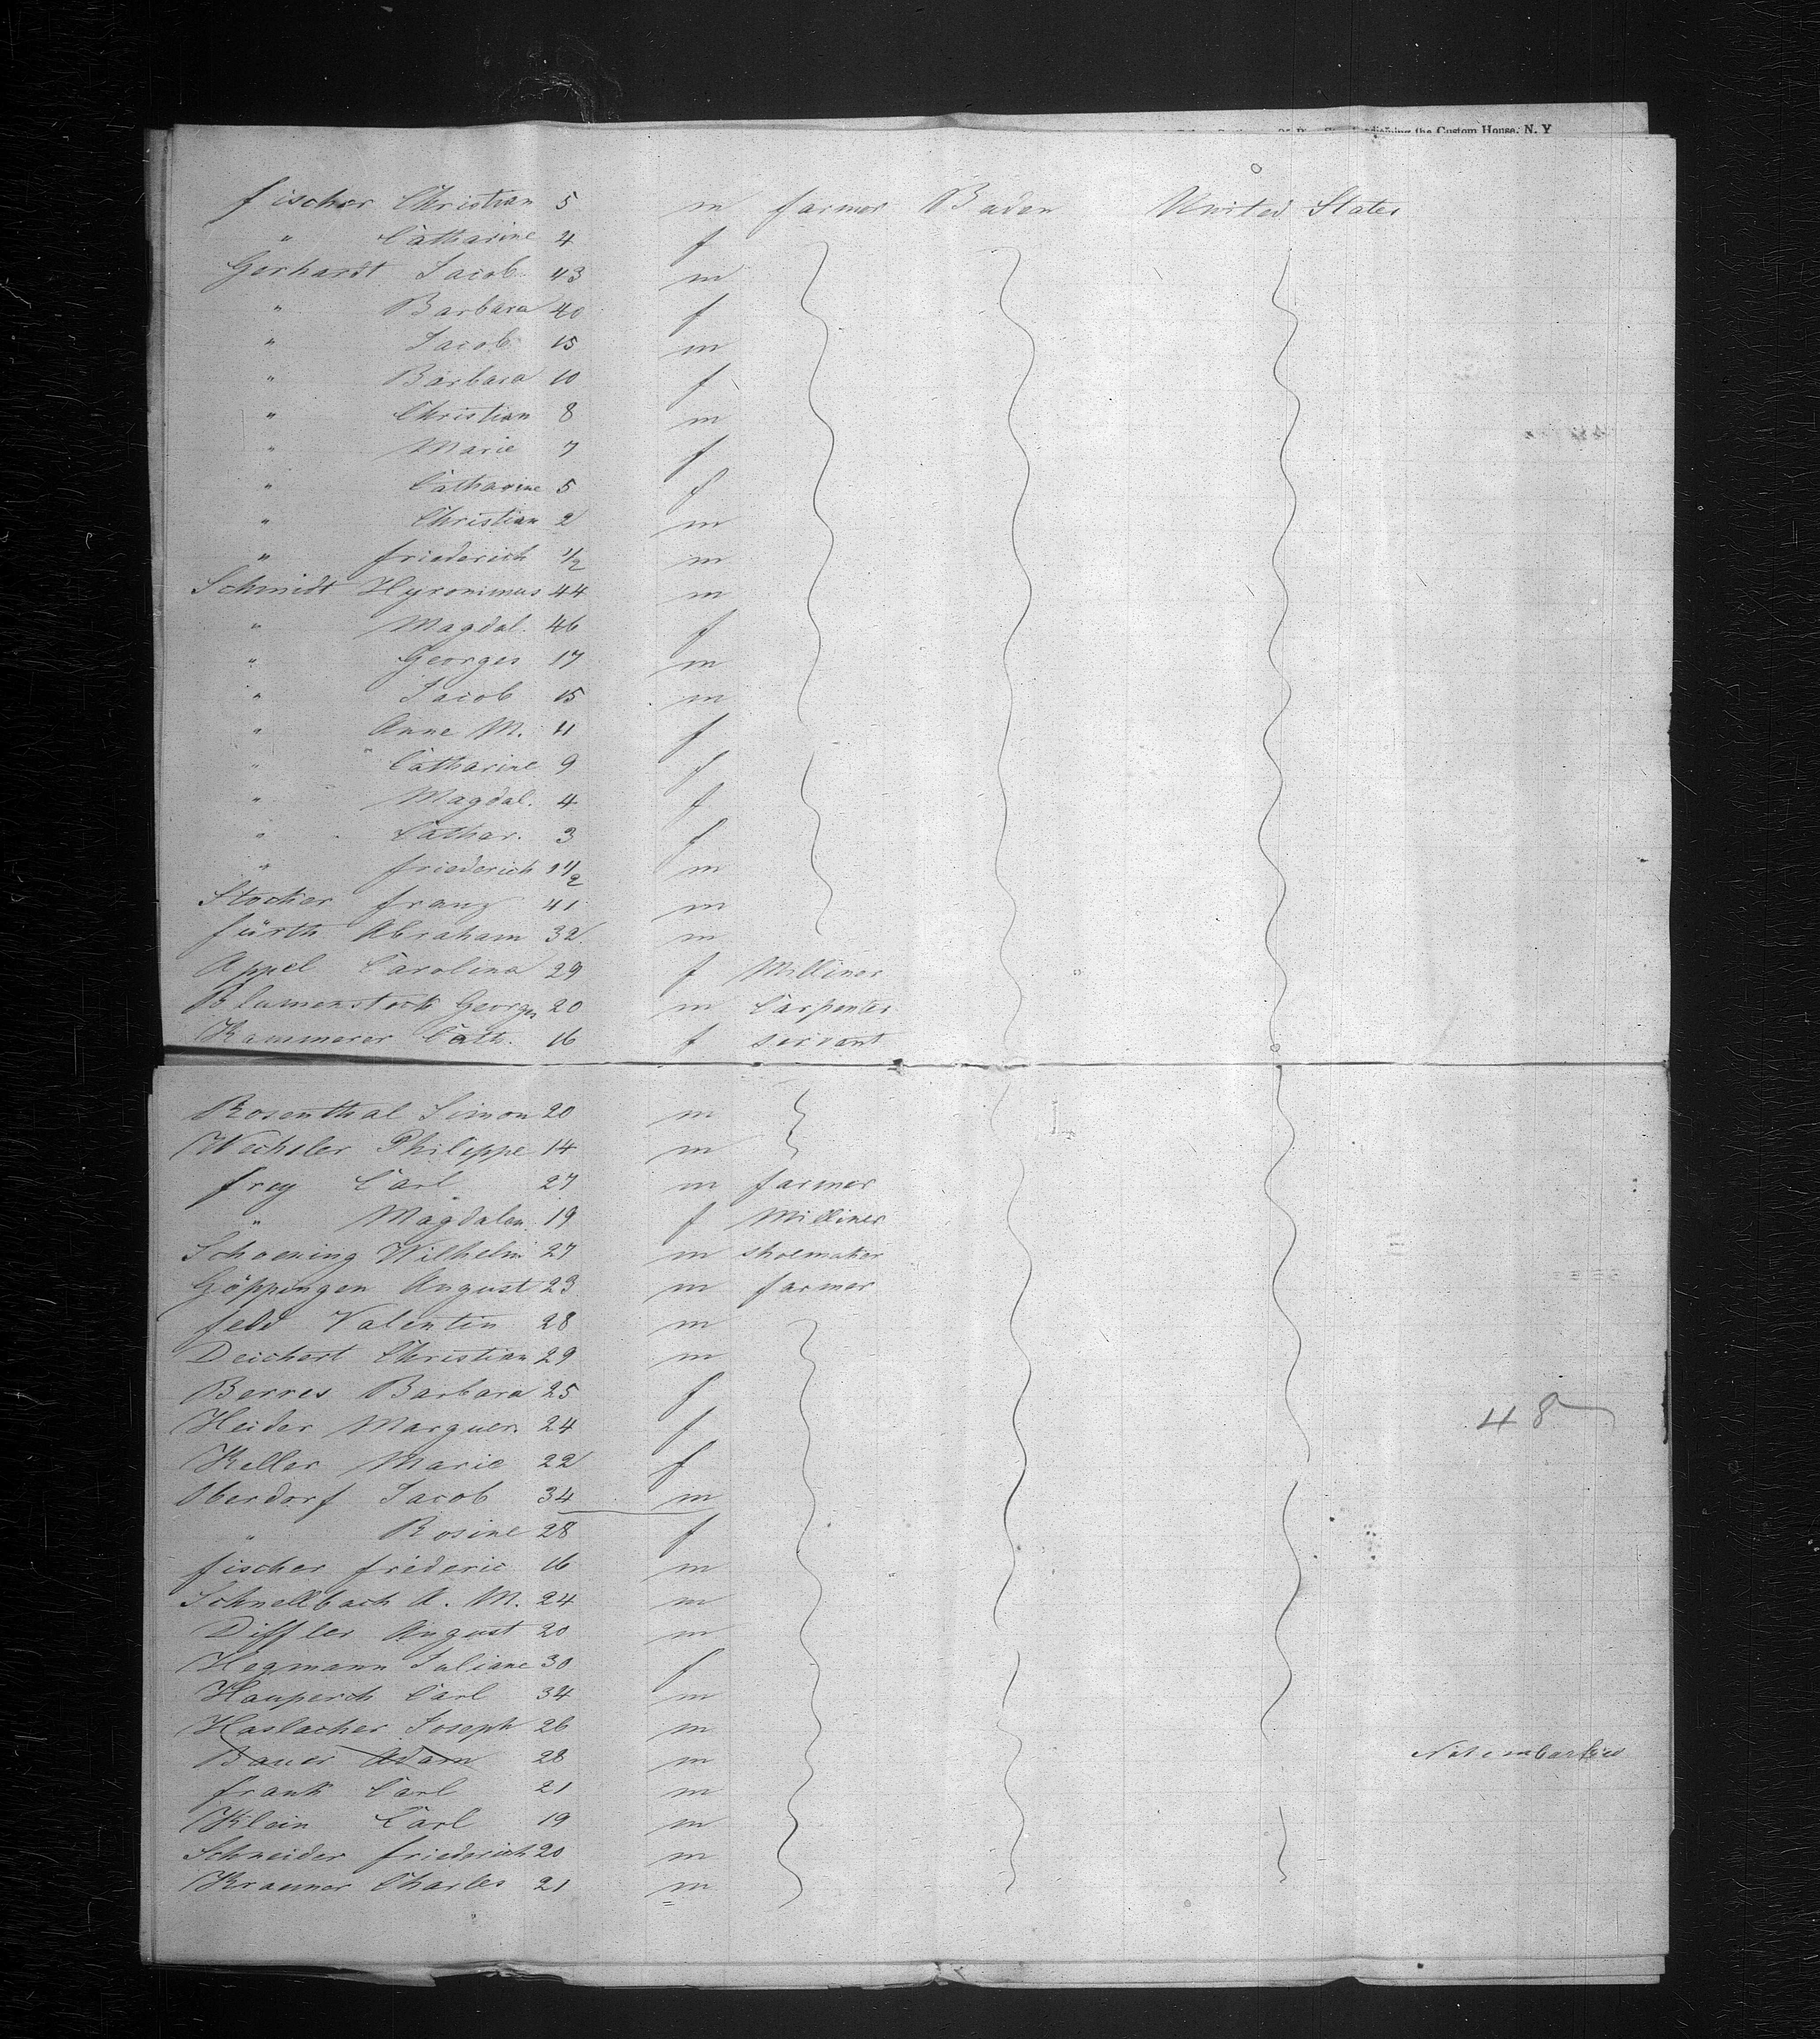 adjoining the Custom House, N. Y
Fischer Christian 5 m farmer Baden United States
" Catharine 4 f
Gerhardt Jacob 43 m
" Barbara 40 f
" Jacob 15 m
" Barbara 10 f
" Christian 8 m
" Marie 7 f
" Catharine 5 f
" Christian 2 m
" Friederich 1/2 m
Schmidt Hyronimus 44 m
" Magdal. 46 f
" Georges 17 m
" Jacob 15 m
" Anne M. 11 f
" Catharine 9 f
" Magdal. 4 f
" Cathar. 3 f
" Friederich 1 1/2 m
Stocker Franz 41 m
Fürth Abraham 32 m
Appel Carolina 29 f Milliner
Blumenstock Georges 20 m Carpenter
Kammerer Cath. 16 f servant
Rosenthal Simon 20 m
Wechsler Philippe 14 m
Frey Carl 27 m farmer
" Magdalen 19 f Milliner
Schoening Wilhelm 27 m shoemaker
Göppingen August 23 m farmer
Feld Valentin 28 m
Deichert Christian 29 m
Berres Barbara 25 f
Heider Marguer. 24 f 48
Keller Marie 22 f
Oberdorf Jacob 34 m
" Rosine 28 f
Fischer Frederic 16 m
Schnellbach A. M. 24 m
Diffler August 20 m
Hegmann Juliane 30 f
Hauperch Carl 34 m
Haslacher Joseph 26 m
Bauer Adam 28 m Not embarked
Frank Carl 21 m
Klein Carl 19 m
Schneider Friederich 20 m
Kramer Charles 21 m